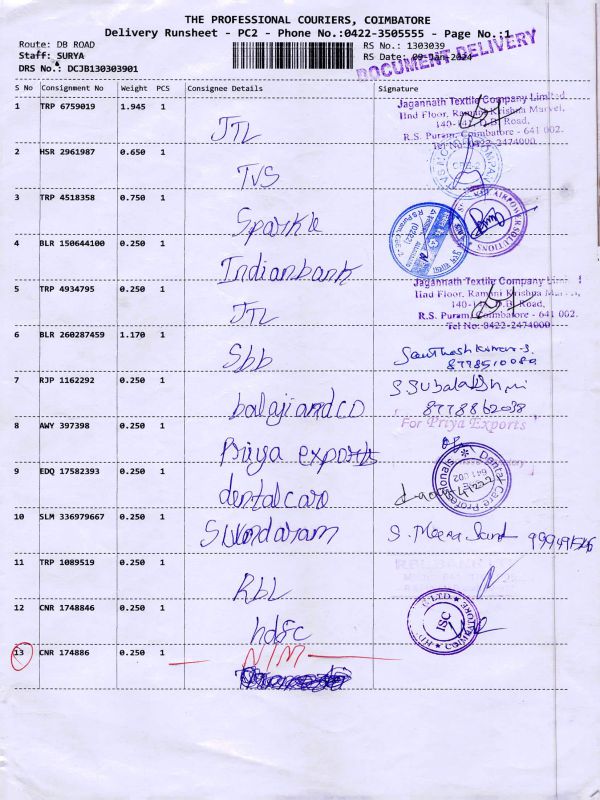 THE PROFESSIONAL COURIERS, COIMBATORE
Delivery Runsheet - PC2 - Phone No.:0422-3505555 - Page No.:1
Route: DB ROAD RS No.: 1303039
Staff: SURYA RS Date: 09-Jan-2024
DRS No.: DCJB130303901
DOCUMENT DELIVERY
S No Consignment No Weight PCS Consignee Details Signature
1 TRP 6759019 1.945 1
JTL
Jagannath Textile Company Limited
IInd Floor, Ramani Krishna Marvel,
140-141, D.B. Road,
R.S. Puram, Coimbatore - 641 002.
Tel No: 0422-2474000
2 HSR 2961987 0.650 1
TVS
3 TRP 4518358 0.750 1
Sparkle
4 BLR 150644100 0.250 1
Indianbank
5 TRP 4934795 0.250 1
JTL
Jagannath Textile Company Limi
IInd Floor, Ramani Krishna Marvel,
140-141, D.B. Road,
R.S. Puram, Coimbatore - 641 002.
Tel No: 0422-2474000
6 BLR 260287459 1.170 1
Sbb
Santhosh Kumar.S.
7 RJP 1162292 0.250 1
balaji and CD
S Subalakshmi
8778862038
8 AWY 397398 0.250 1
Priya exports
For Priya Exports
9 EDQ 17582393 0.250 1
dentalcare
Dental Care Professionals
10 SLM 336979667 0.250 1
Sundaram
11 TRP 1089519 0.250 1
RBL
RBL BANK
12 CNR 1748846 0.250 1
hdfc
13 CNR 174886 0.250 1
NIM